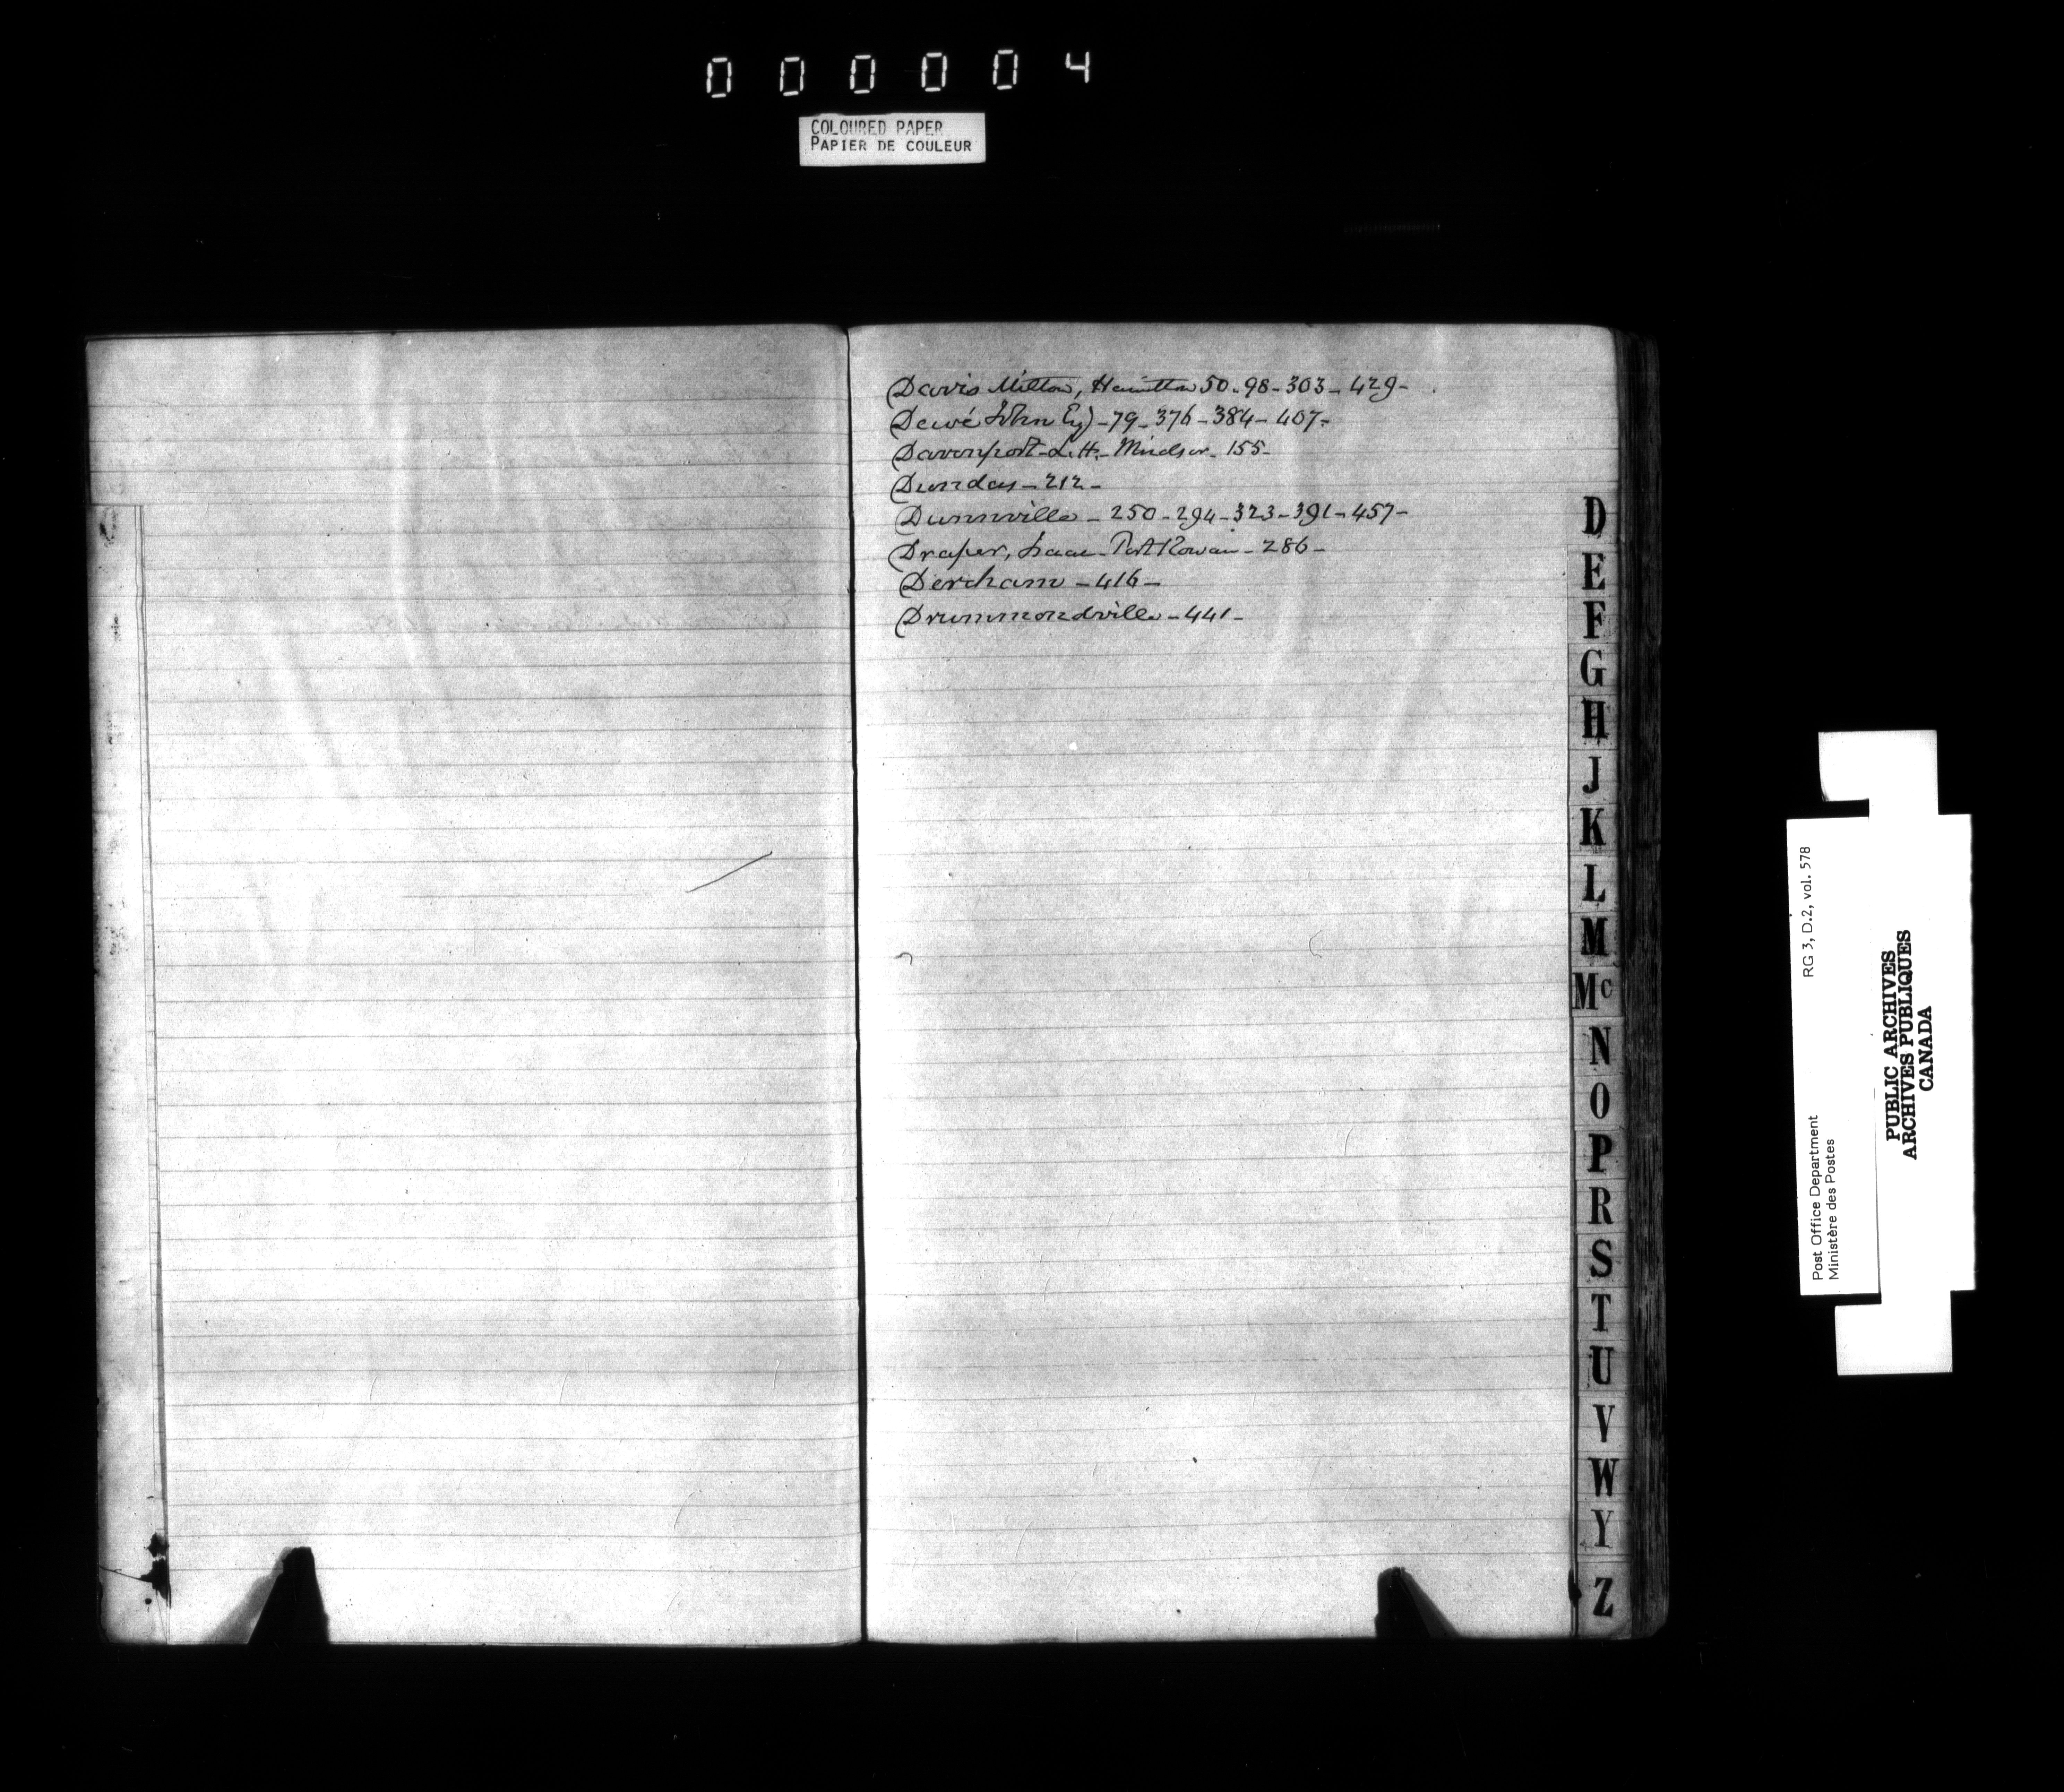 000004
COLOURED PAPER
PAPIER DE COULEUR
Davis Milton, Hamilton 50-98-303-429-
Dewé John Esq)-79-376-384-407-
Davenport-L.H.-Windsor-155-
Dundas-212-
Dunnville-250-294-323-391-457-
Draper, Isaac-Port Rowan-286-
Dereham-416-
Drummondville-441-
D
E
F
G
H
J
K
L
M
Mc
N
O
P
R
S
T
U
V
W
Y
Z
Post Office Department RG 3, D.2, vol. 578
Ministère des Postes
PUBLIC ARCHIVES
ARCHIVES PUBLIQUES
CANADA